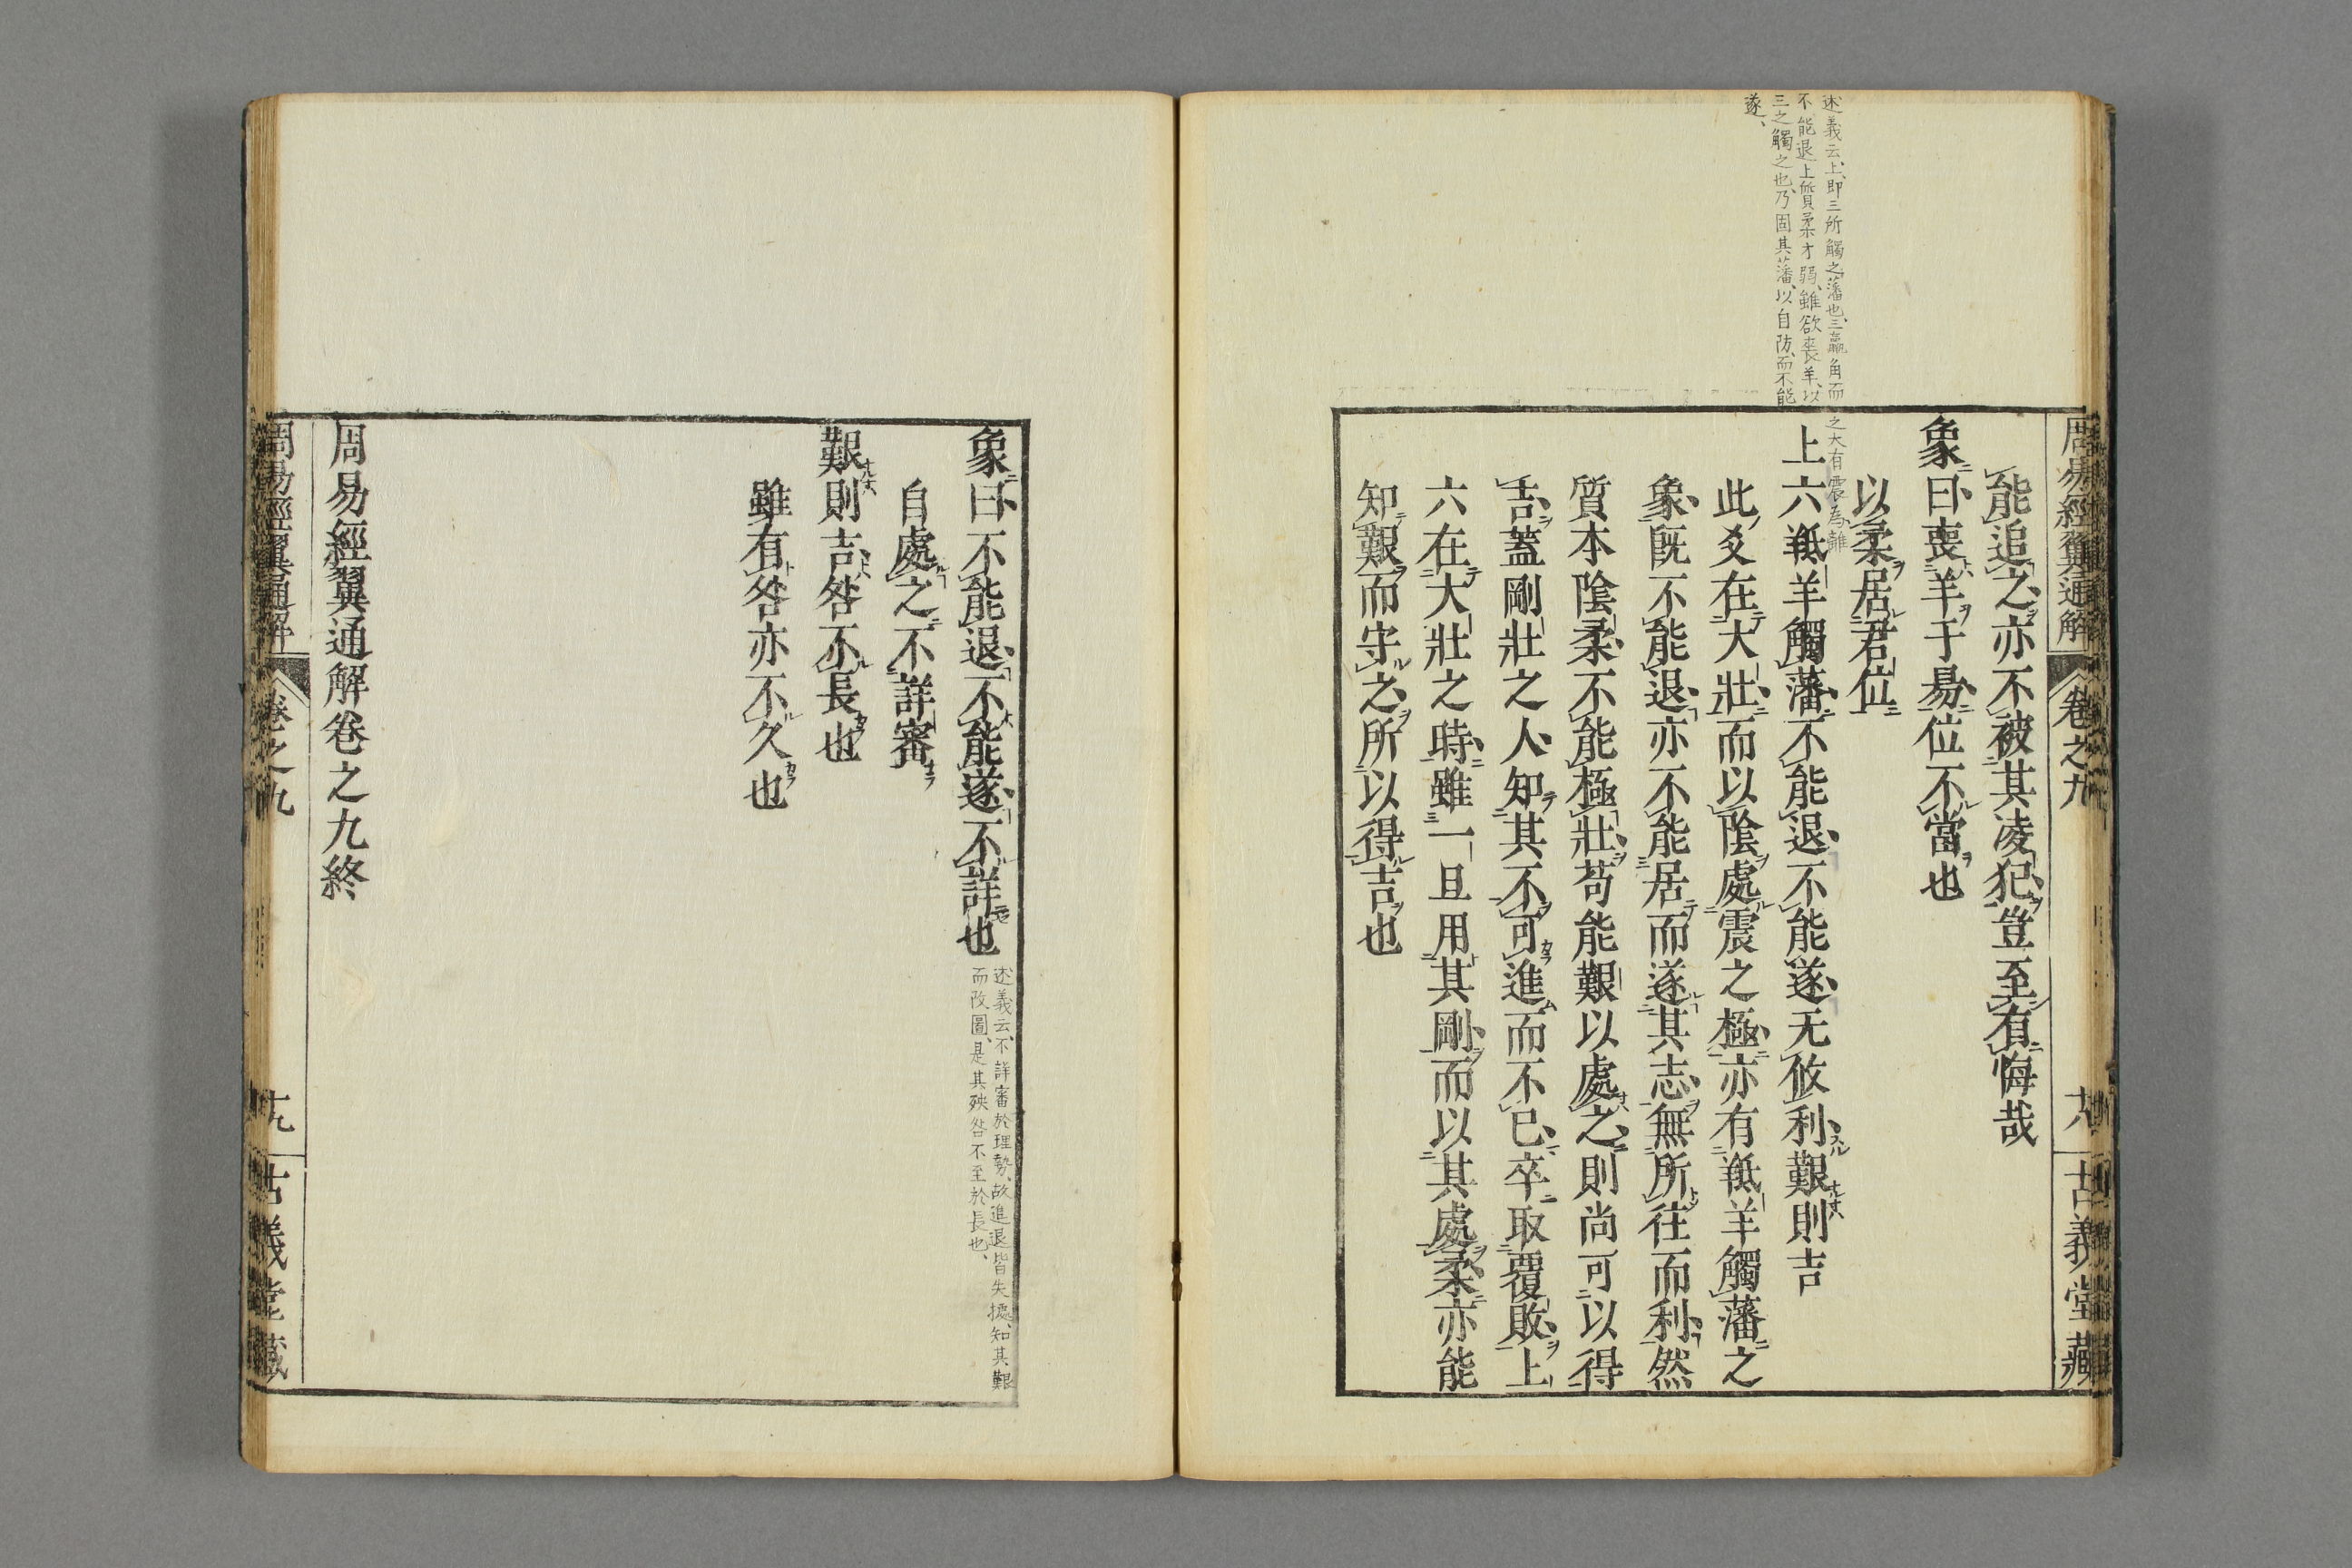 周易經翼通解 卷之九 十八 古義堂藏
能追之亦不被其凌犯豈至有悔哉
象曰喪羊于易位不當也
以柔居君位
之大有震為離
上六羝羊觸藩不能退不能遂无攸利艱則吉
此爻在大壯而以陰處震之極亦有羝羊觸藩之
象既不能退亦不能居而遂其志無所往而利然
質本陰柔不能極壯苟能艱以處之則尚可以得
吉蓋剛壯之人知其不可進而不已卒取覆敗上
六在大壯之時雖一旦用其剛而以其處柔亦能
知艱而守之所以得吉也
述義云上即三所觸之藩也三羸角而
不能退上質柔才弱雖欲喪羊以
三之觸之也乃固其藩以自防而不能
遂
象曰不能退不能遂不詳也
述義云不詳審於理勢故進退皆失據知其艱
而改圖是其殃咎不至於長也
自處之不詳審
艱則吉咎不長也
雖有咎亦不久也
周易經翼通解卷之九終
周易經翼通解 卷之九 十九 古義堂藏